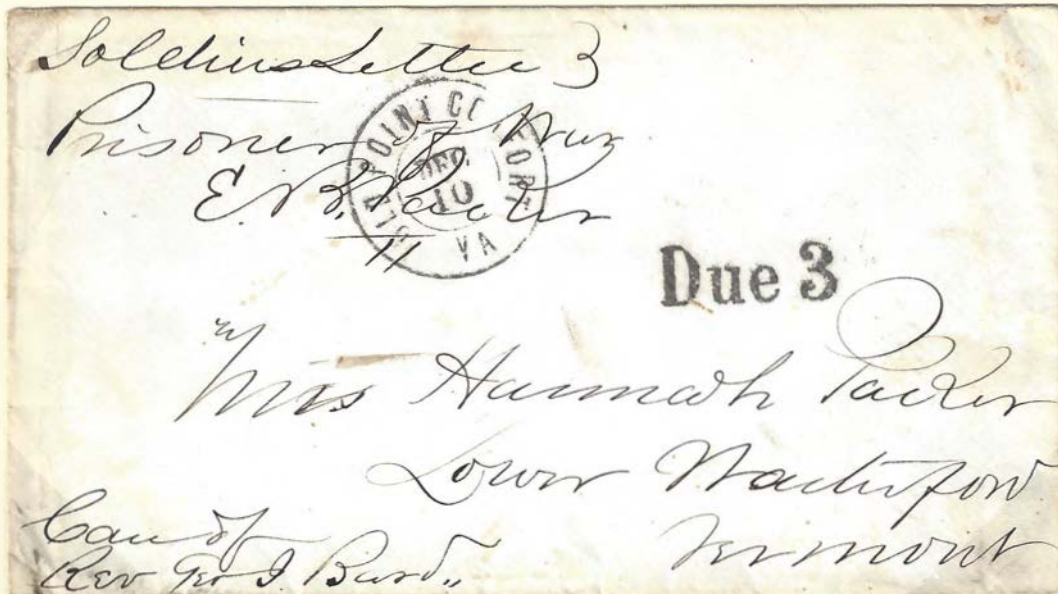 Soldiers Letter 3
Prisoner of War
E. B. Packer
OLD POINT COMFORT
DEC
10
VA
Due 3
Mrs Hannah Packer
Lower Waterford
Vermont
Care of
Rev Geo I. Bard